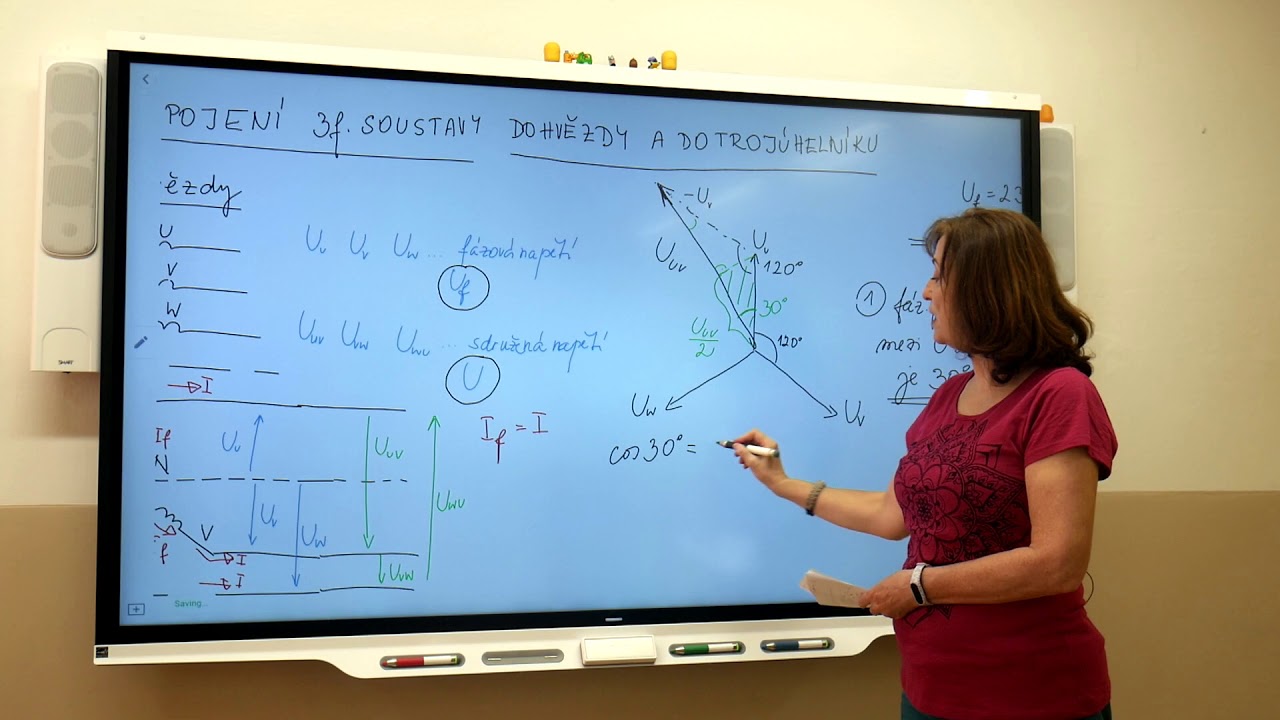 POJENÍ 3f. SOUSTAVY DO HVĚZDY A DO TROJÚHELNÍKU
ězdy
U
V
W
I
U_U U_V U_W ... fázová napětí
U_f
U_UV U_VW U_WU ... sdružená napětí
U
I_f = I
I_f
N
U_U
U_V
U_W
U_UV
U_WU
U_VW
V
f
I
I
-U_V
U_UV
U_U
120°
30°
U_UV
2
120°
U_W
U_V
cos 30° =
U_f = 23
1 fáz
mezi U
je 30°
Saving...
SMART